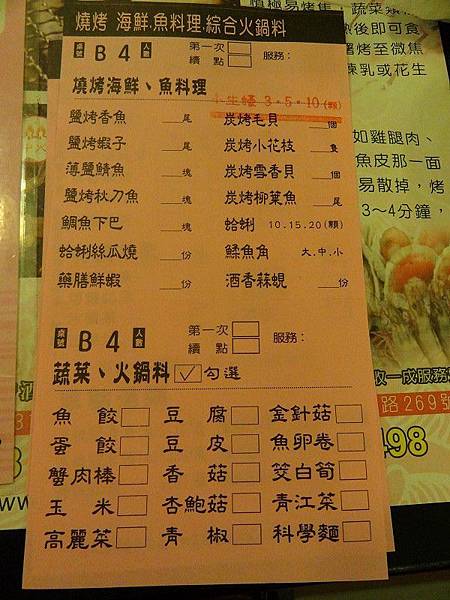 燒烤 海鮮.魚料理.綜合火鍋料
桌號 B4 人數 第一次 續點 服務：
燒烤海鮮、魚料理
生蠔 3·5·10(顆)
鹽烤香魚 尾 炭烤毛貝 個
鹽烤蝦子 尾 炭烤小花枝 隻
薄鹽鯖魚 塊 炭烤雪香貝 個
鹽烤秋刀魚 塊 炭烤柳葉魚 尾
鯛魚下巴 塊 蛤蜊 10.15.20(顆)
蛤蜊絲瓜燒 份 鰇魚角 大.中.小
藥膳鮮蝦 份 酒香蒜蜆 份
桌號 B4 人數 第一次 續點 服務：
蔬菜、火鍋料 ✓ 勾選
魚餃 豆腐 金針菇
蛋餃 豆皮 魚卵卷
蟹肉棒 香菇 筊白筍
玉米 杏鮑菇 青江菜
高麗菜 青椒 科學麵
即可食
烤至微焦
煉乳或花生
如雞腿肉、
魚皮那一面
易散掉，烤
3~4分鐘，
收一成服務
路269號
498